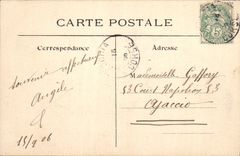 CARTE POSTALE
Correspondance
Adresse
souvenir affectueux
Angèle
15/9 06
Mademoiselle Gaffory
53 Court Napoléon 53
Ajaccio